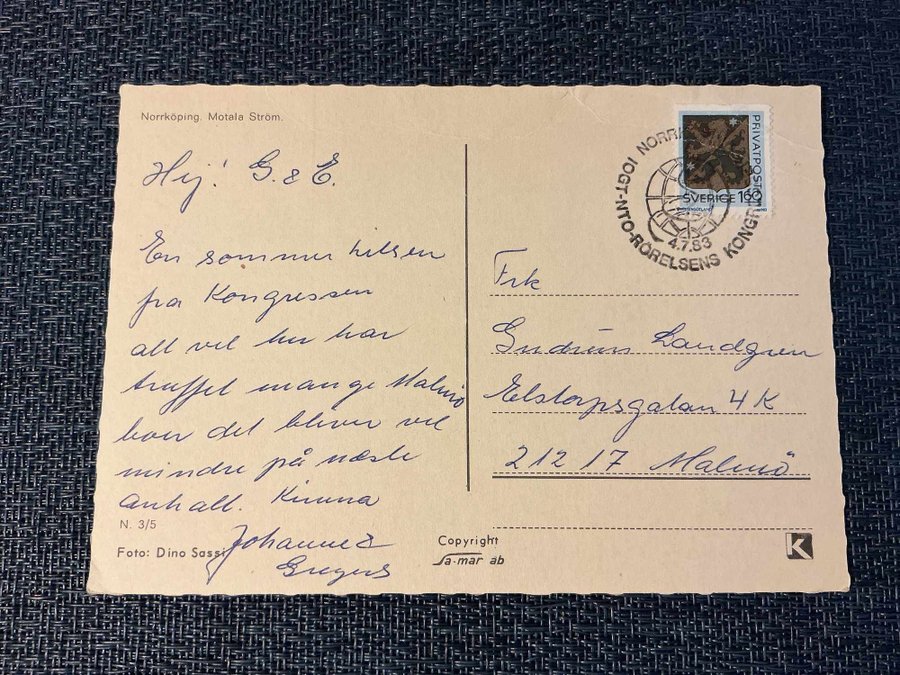 Norrköping. Motala Ström.
Hej! G. & E.
En sommer hilsen
fra Kongressen
alt vel her har
truffet mange Malmö
boer det bliver vel
mindre på næste
anhalt. Kinna
Johanne &
Gregers
N. 3/5
Foto: Dino Sassi
Copyright
sa-mar ab
PRIVATPOST
SVERIGE 160
NORR
IOGT-NTO-RÖRELSENS KONGR
4.7.83
Frk
Gudrun Landgren
Elstorpsgatan 4 K
212 17 Malmö
K